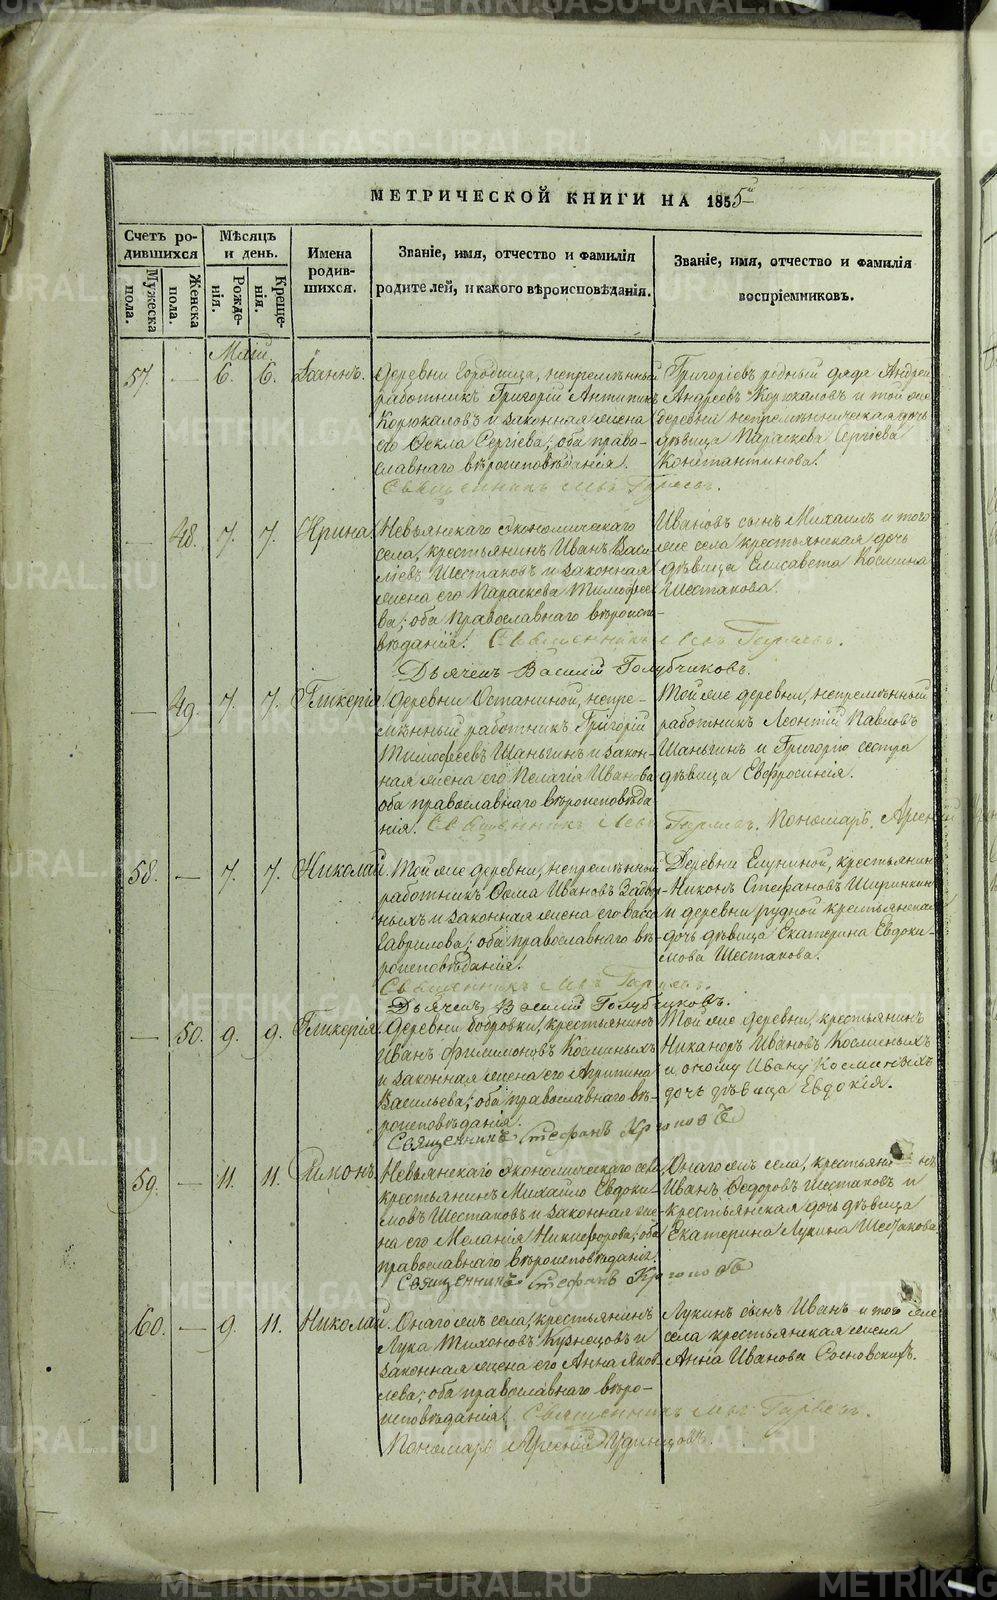 METRIKI.GASO-URAL.RU
МЕТРИЧЕСКОЙ КНИГИ НА 1855й
Счетъ родившихся
Мѣсяцъ и день.
Имена родившихся.
Званіе, имя, отчество и фамилія родителей, и какого вѣроисповѣданія.
Званіе, имя, отчество и фамилія воспріемниковъ.
Мужеска пола.
Женска пола.
Рожденія.
Крещенія.
Маій.
57. — 6. 6. Іоаннъ.
Деревни Городища, непремѣнный
работникъ Григорій Антипинъ
Корюкаловъ и законная жена
его Ѳекла Сергіева; оба право-
славнаго вѣроисповѣданія.
Григоріевъ родный дядя Андрей
Андреевъ Корюкаловъ и той же
деревни непремѣнническая дочь
дѣвица Параскева Сергіева
Константинова.
Священникъ Левъ
— 48. 7. 7. Ирина.
Невьянскаго экономическаго
села, крестьянинъ Иванъ Васи-
ліевъ Шестаковъ и законная
жена его Параскева Тимофее-
ва; оба православнаго вѣроиспо-
вѣданія.
Ивановъ сынъ Михаилъ и того
же села крестьянская дочь
дѣвица Елисавета Космина
Шестакова.
Священникъ Левъ
Дьячекъ Василій Голубчиковъ.
— 49. 7. 7. Гликерія.
Деревни Останиной, непре-
мѣнный работникъ Григорій
Тимофеевъ Шаньгинъ и закон-
ная жена его Пелагія Иванова
оба православнаго вѣроисповѣда-
нія.
Той же деревни, непремѣнный
работникъ Леонтій Павловъ
Шаньгинъ и Григорію сестра
дѣвица Евфросинія.
Священникъ Левъ
Пономарь Арсеній
58. — 7. 7. Николай.
Той же деревни, непремѣнной
работникъ Ѳома Ивановъ
и законная жена его Васса
Гаврилова; оба православнаго вѣ-
роисповѣданія.
Деревни Елуниной, крестьянинъ
Никонъ Стефановъ Ширинкинъ
и деревни рудной крестьянская
дочь дѣвица Екатерина Евдоки-
мова Шестакова.
Священникъ Левъ
Дьячекъ Василій Голубчиковъ.
— 50. 9. 9. Гликерія.
Деревни Бобровки, крестьянинъ
Иванъ Филимоновъ Косминыхъ
и законная жена его Агрипина
Васильева; оба православнаго вѣ-
роисповѣданія.
Той же деревни, крестьянинъ
Никаноръ Ивановъ Косминыхъ
и оному Ивану Косминыхъ
дочь дѣвица Евдокія.
Священникъ Стефанъ
59. — 11. 11. Симонъ.
Невьянскаго экономическаго села
крестьянинъ Михайло Евдоки-
мовъ Шестаковъ и законная же-
на его Меланія Никифорова; оба
православнаго вѣроисповѣданія.
Онаго жъ села, крестьянинъ
Иванъ Ѳедоровъ Шестаковъ и
крестьянская дочь дѣвица
Екатерина Лукина Шестакова.
Священникъ Стефанъ
60. — 9. 11. Николай.
Онаго жъ села, крестьянинъ
Лука Тихоновъ Кузнецовъ и
законная жена его Анна Яков-
лева; оба православнаго вѣро-
исповѣданія.
Лукинъ сынъ Иванъ и того же
села крестьянская жена
Анна Иванова Сосновскихъ.
Священникъ Левъ
Пономарь Арсеній Удинцовъ.